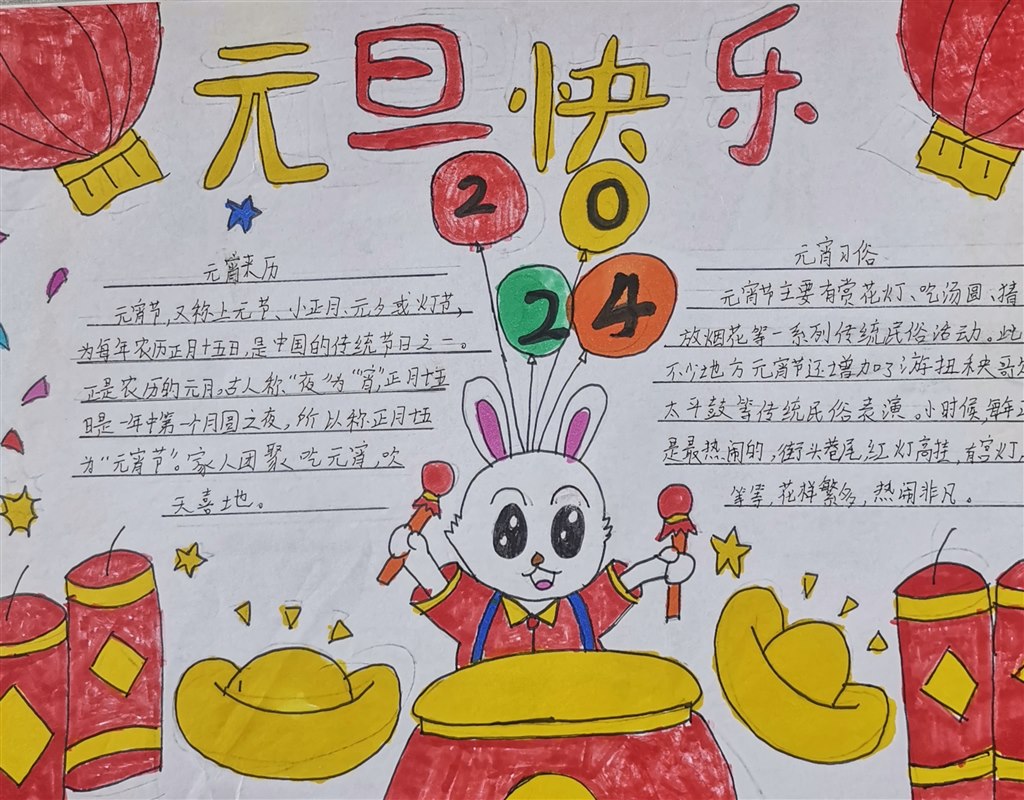 元旦快乐
2 0
2 4
元宵来历
元宵节,又称上元节、小正月、元夕或灯节,
为每年农历正月十五日,是中国的传统节日之一。
正是农历的元月,古人称“夜”为“宵”,正月十五
日是一年中第一个月圆之夜,所以称正月十五
为“元宵节”。家人团聚、吃元宵,欢
天喜地。
元宵习俗
元宵节主要有赏花灯、吃汤圆、猜
放烟花等一系列传统民俗活动。此
不少地方元宵节还增加了游扭秧歌
太平鼓等传统民俗表演。小时候,每年
是最热闹的,街头巷尾,红灯高挂,有宫灯,
等等,花样繁多,热闹非凡。